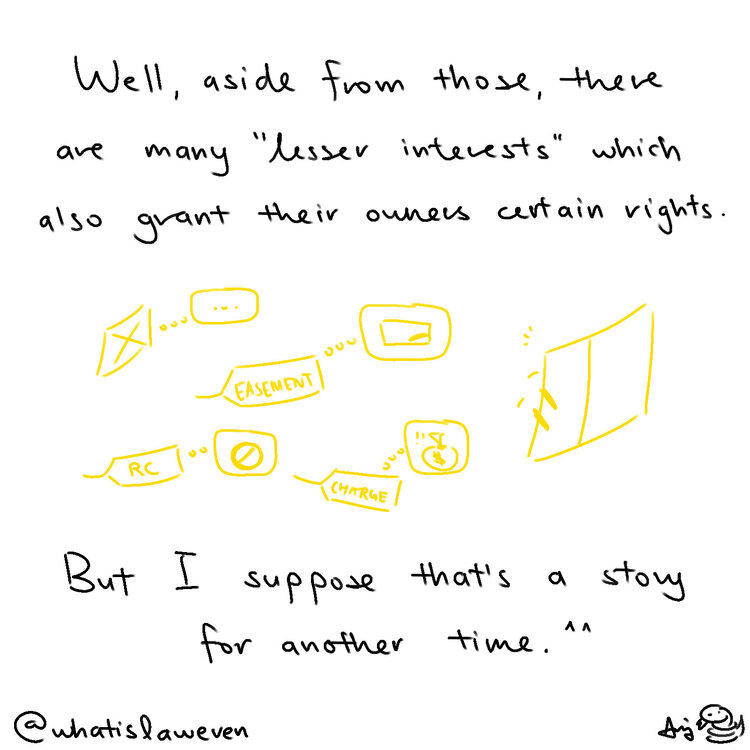 Well, aside from those, there
are many "lesser interests" which
also grant their owners certain rights.
...
EASEMENT
RC
CHARGE
But I suppose that's a story
for another time. ^^
@whatislaweven